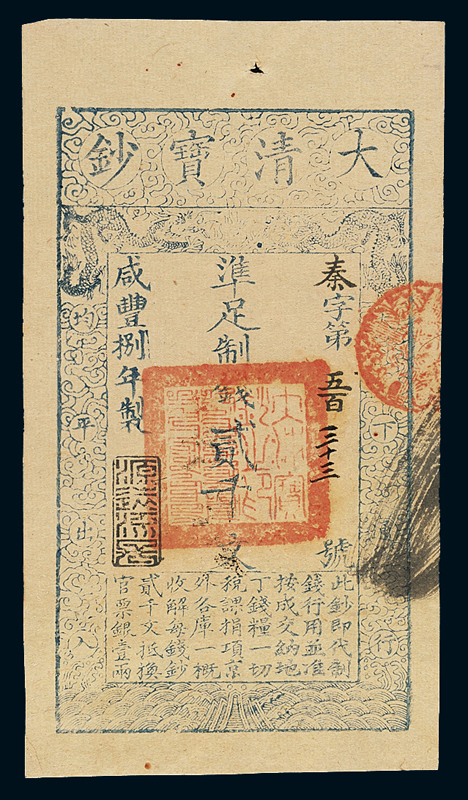 大清寶鈔
下行
秦字第五百三十三號
準足制錢貳千文
咸豐捌年製
源遠流長
均平出入
此鈔即代制
錢行用並准
按成交納地
丁錢糧一切
稅課捐項京
外各庫一概
收解每錢鈔
貳千文抵換
官票銀壹兩